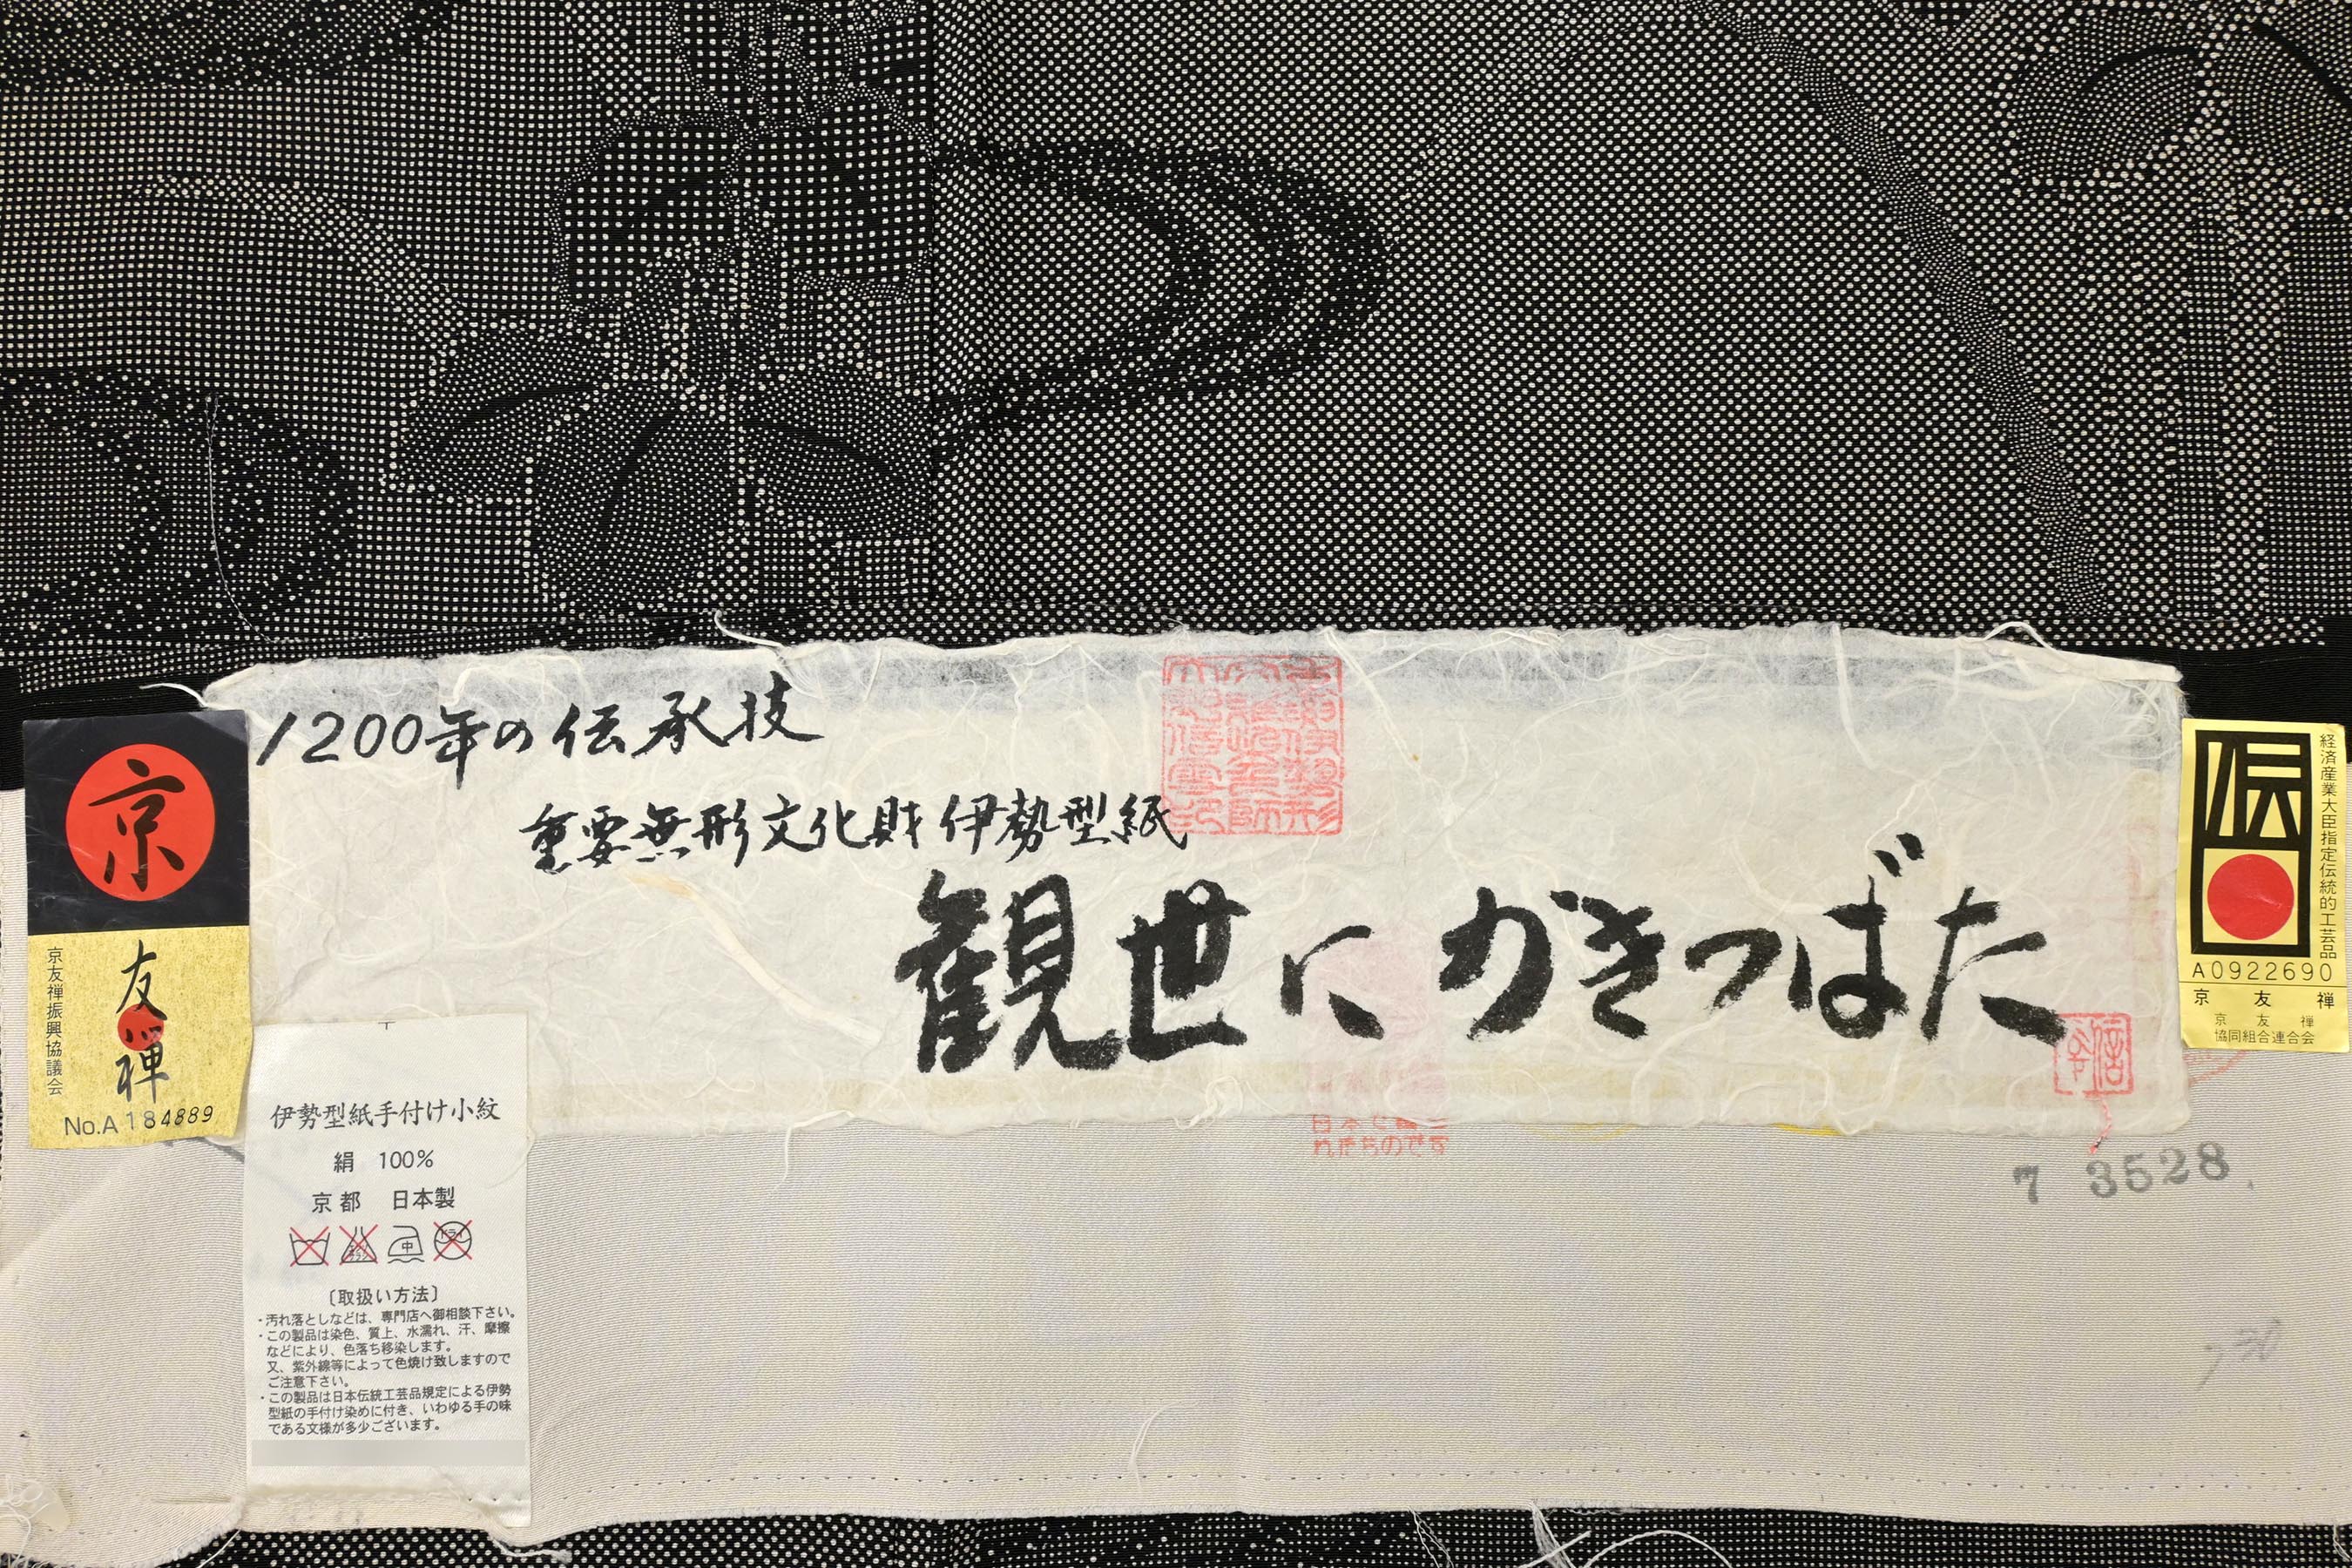 1200年の伝承技
重要無形文化財伊勢型紙
観世に かきつばた
京
友禅
京友禅振興協議会
No.A 184889
伊勢型紙手付け小紋
絹 100%
京都 日本製
中
ドライ
〔取扱い方法〕
・汚れ落としなどは、専門店へ御相談下さい。
・この製品は染色、質上、水濡れ、汗、摩擦
などにより、色落ち移染します。
又、紫外線等によって色焼け致しますので
ご注意下さい。
・この製品は日本伝統工芸品規定による伊勢
型紙の手付け染めに付き、いわゆる手の味
である文様が多少ございます。
伝
経済産業大臣指定伝統的工芸品
A0922690
京友禅
京友禅
協同組合連合会
7 3528